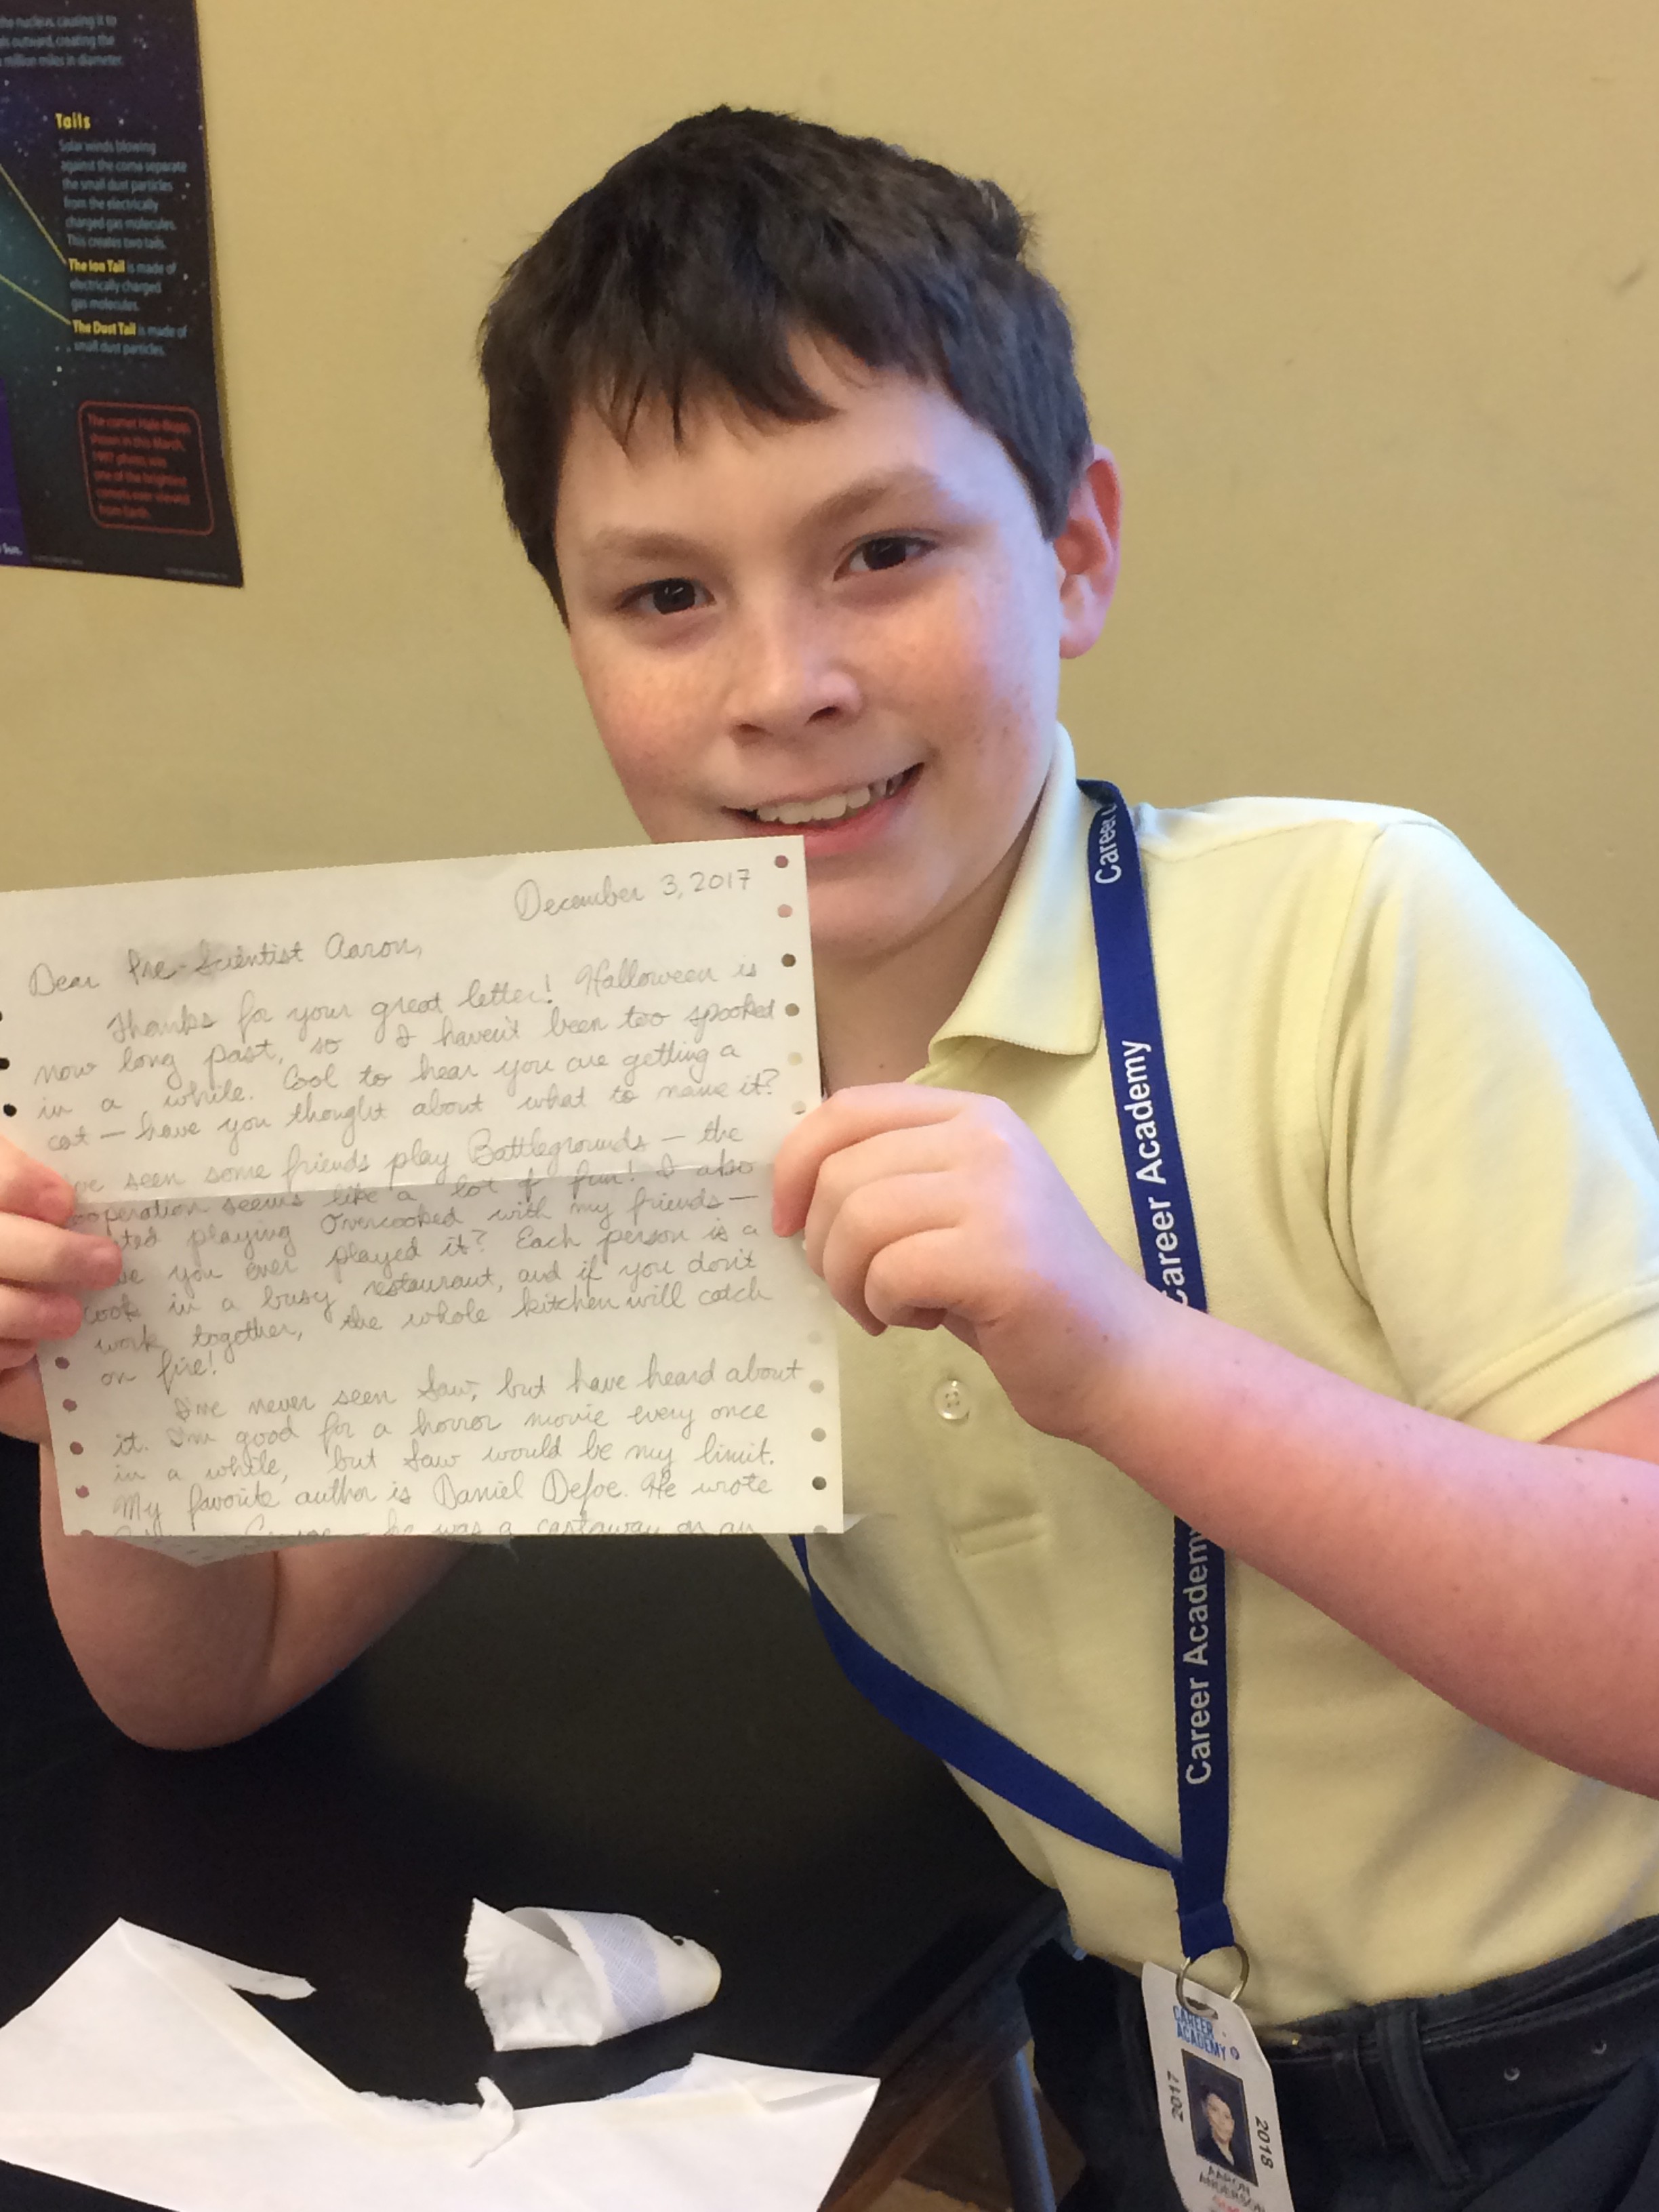 the nucleus, causing it to
outward, creating the
million miles in diameter.
Tails
Solar winds blowing
against the coma separate
the small dust particles
from the electrically
charged gas molecules.
This creates two tails.
The Ion Tail is made of
electrically charged
gas molecules.
The Dust Tail is made of
small dust particles.
The comet Hale-Bopp,
shown in this March,
1997 photo, was
one of the brightest
comets ever viewed
from Earth.
Sun.
December 3, 2017
Dear Pre-Scientist Aaron,
Thanks for your great letter! Halloween is
now long past, so I haven't been too spooked
in a while. Cool to hear you are getting a
cat — have you thought about what to name it?
seen some friends play Battlegrounds — the
operation seems like a lot of fun! I also
ted playing Overcooked with my friends —
you ever played it? Each person is a
cook in a busy restaurant, and if you don't
work together, the whole kitchen will catch
on fire!
I've never seen Saw, but have heard about
it. I'm good for a horror movie every once
in a while, but Saw would be my limit.
My favorite author is Daniel Defoe. He wrote
he was a castaway on an
Career
Career Academy
Career Academy
Career Academy
CAREER
ACADEMY
2017
2018
AARON
ANDERSON